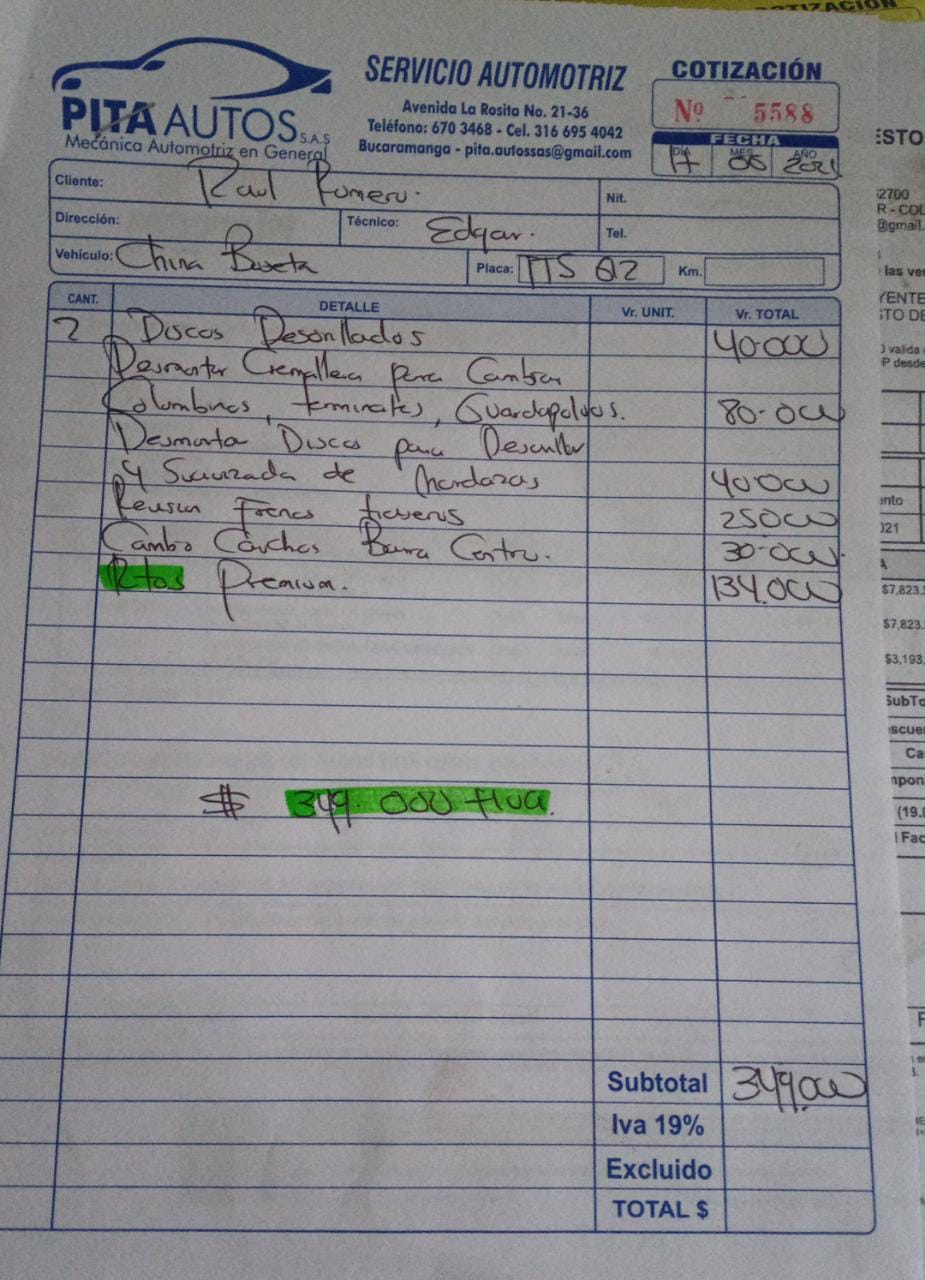 COTIZACIÓN
PITA AUTOS S.A.S
Mecánica Automotriz en General
SERVICIO AUTOMOTRIZ
Avenida La Rosita No. 21-36
Teléfono: 670 3468 - Cel. 316 695 4042
Bucaramanga - pita.autossas@gmail.com
COTIZACIÓN
Nº 5588
FECHA
DÍA MES AÑO
17 06 2021
Cliente: Raul Romero.
Nit.
Dirección:
Técnico: Edgar.
Tel.
Vehículo: China Buseta
Placa: TTS 612
Km.
CANT. DETALLE Vr. UNIT. Vr. TOTAL
2 Discos 40.000
Desmontar Cremallera para Cambiar
Columbinas, terminales, Guardapolvos. 80.000
Desmonta Discos para
y de Mordazas 40.000
Frenos traseros 25000
Cambio Cauchos Barra Centro. 30.000.
Rtos Premium. 134.000
$ 349.000 +Iva.
Subtotal 349.000
Iva 19%
Excluido
TOTAL $
ESTO
R - COL
@gmail.
las ve
valida
P desde
nto
021
$7,823.
$7,823.
$3,193.
SubTo
scue
Ca
mpon
(19.
l Fac